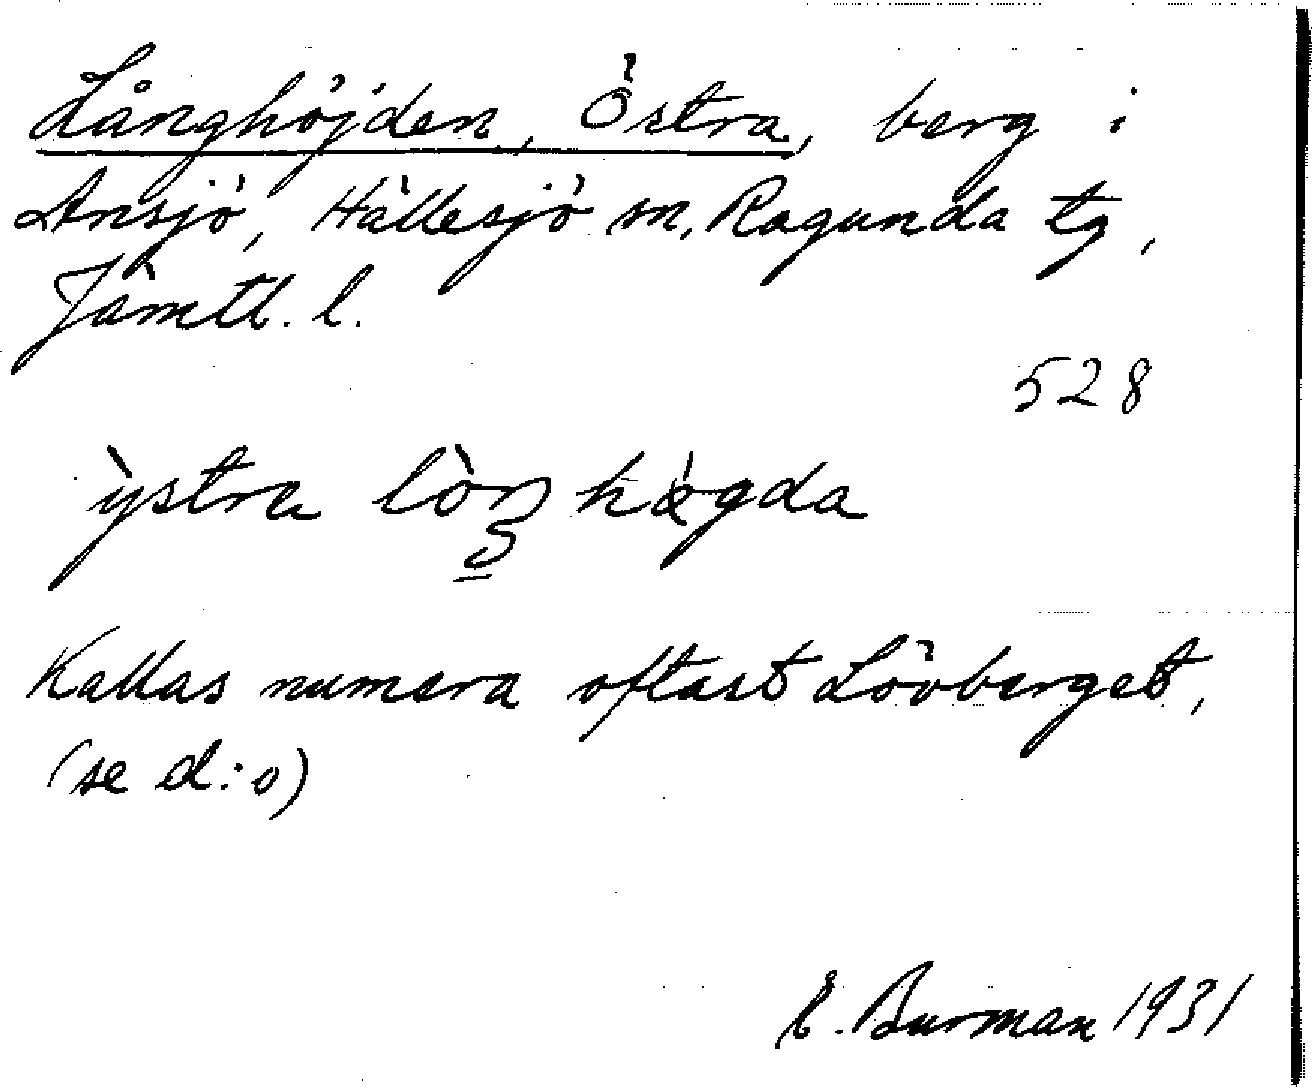 Långhöjden, Östra, berg i
Ansjö, Hällesjö sn, Ragunda tg,
Jämtl. l.
528
ỳstra lòŋ hø̀gda
Kallas numera oftast Lövberget,
(se d:o)
E. Burman 1931